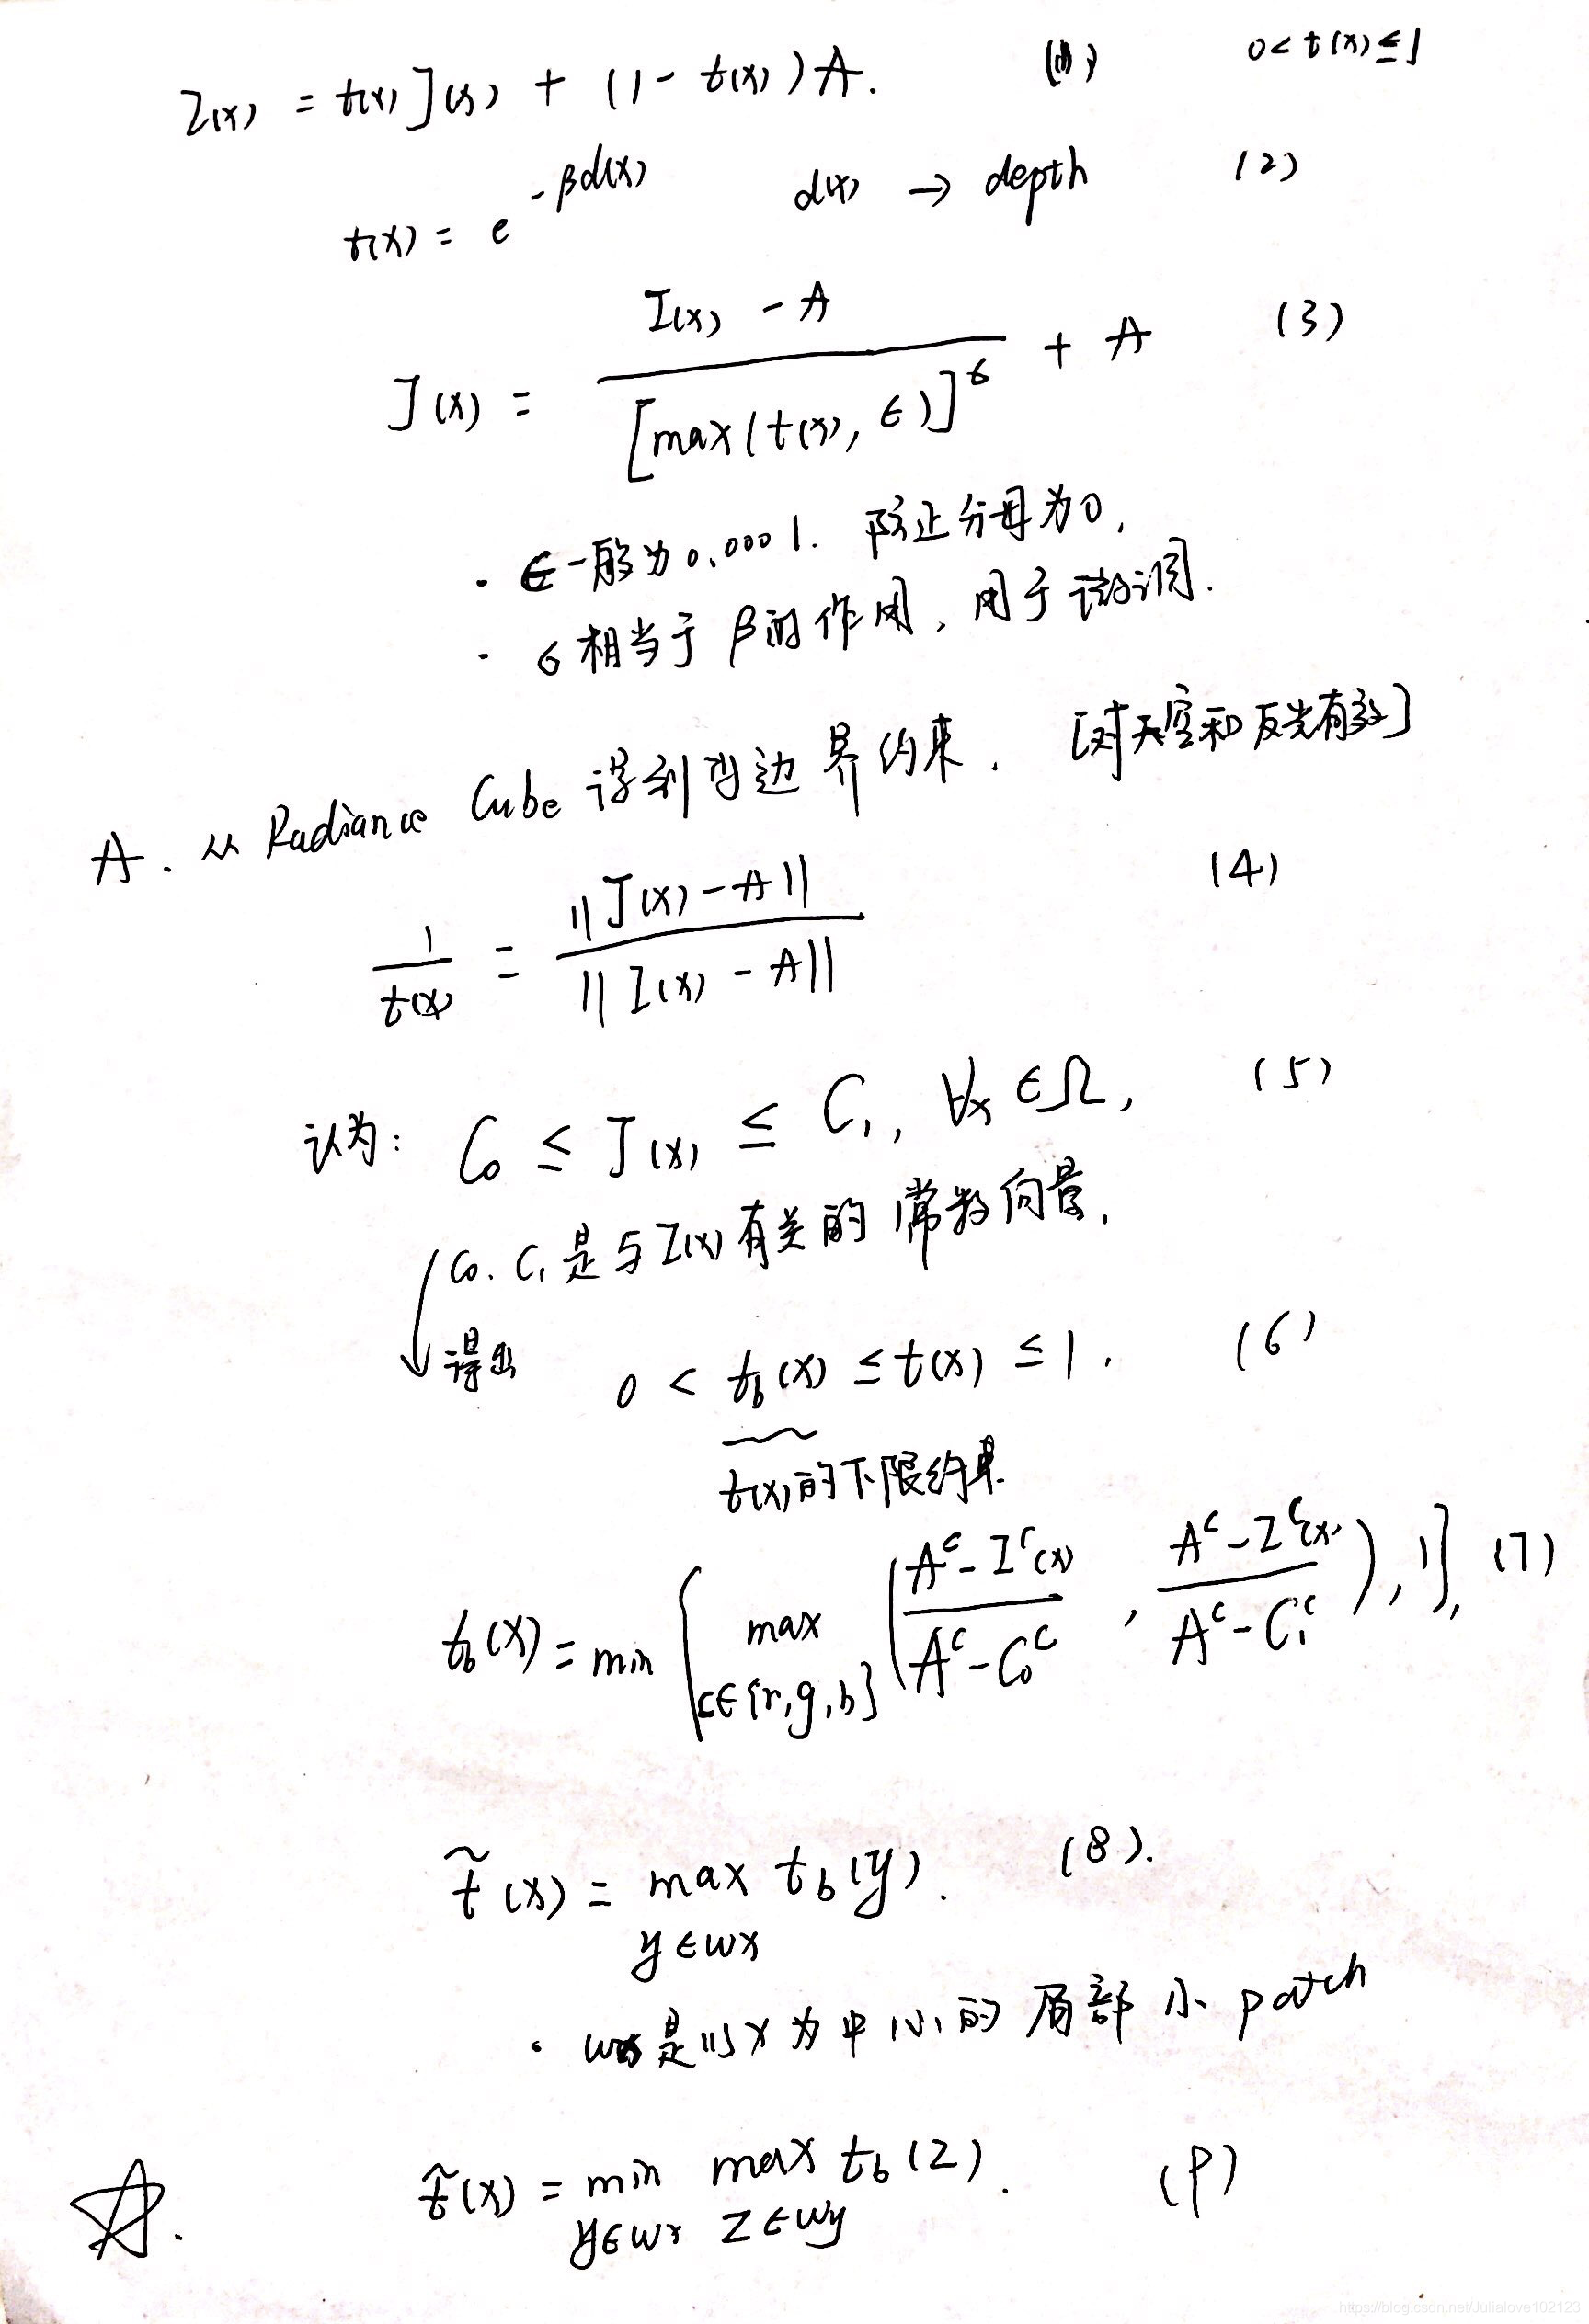 I(x) = t(x) J(x) + (1 - t(x)) A. (1) 0 < t(x) ≤ 1
t(x) = e^{-βd(x)} d(x) → depth (2)
J(x) = \frac{I(x) - A}{[max(t(x), ϵ)]^δ} + A (3)
· ϵ一般为0.0001. 防止分母为0,
· δ相当于β的作用, 用于微调.
A. 从 Radiance Cube 得到的边界约束. [对天空和反光有效]
\frac{1}{t(x)} = \frac{||J(x) - A||}{||I(x) - A||} (4)
认为: C_0 ≤ J(x) ≤ C_1, ∀x ∈ Ω, (5)
C_0. C_1 是与I(x)有关的常数向量,
↓得出 0 < t_b(x) ≤ t(x) ≤ 1, (6)
t(x)的下限约束
t_b(x) = min { max_{c∈{r,g,b}} ( \frac{A^c - I^c(x)}{A^c - C_0^c} , \frac{A^c - I^c(x)}{A^c - C_1^c} ), 1}, (7)
\tilde{t}(x) = max_{y∈wx} t_b(y). (8).
· wx是以x为中心的局部小patch
☆. \hat{t}(x) = min_{y∈wx} max_{z∈wy} t_b(z). (9)
https://blog.csdn.net/Julialove102123